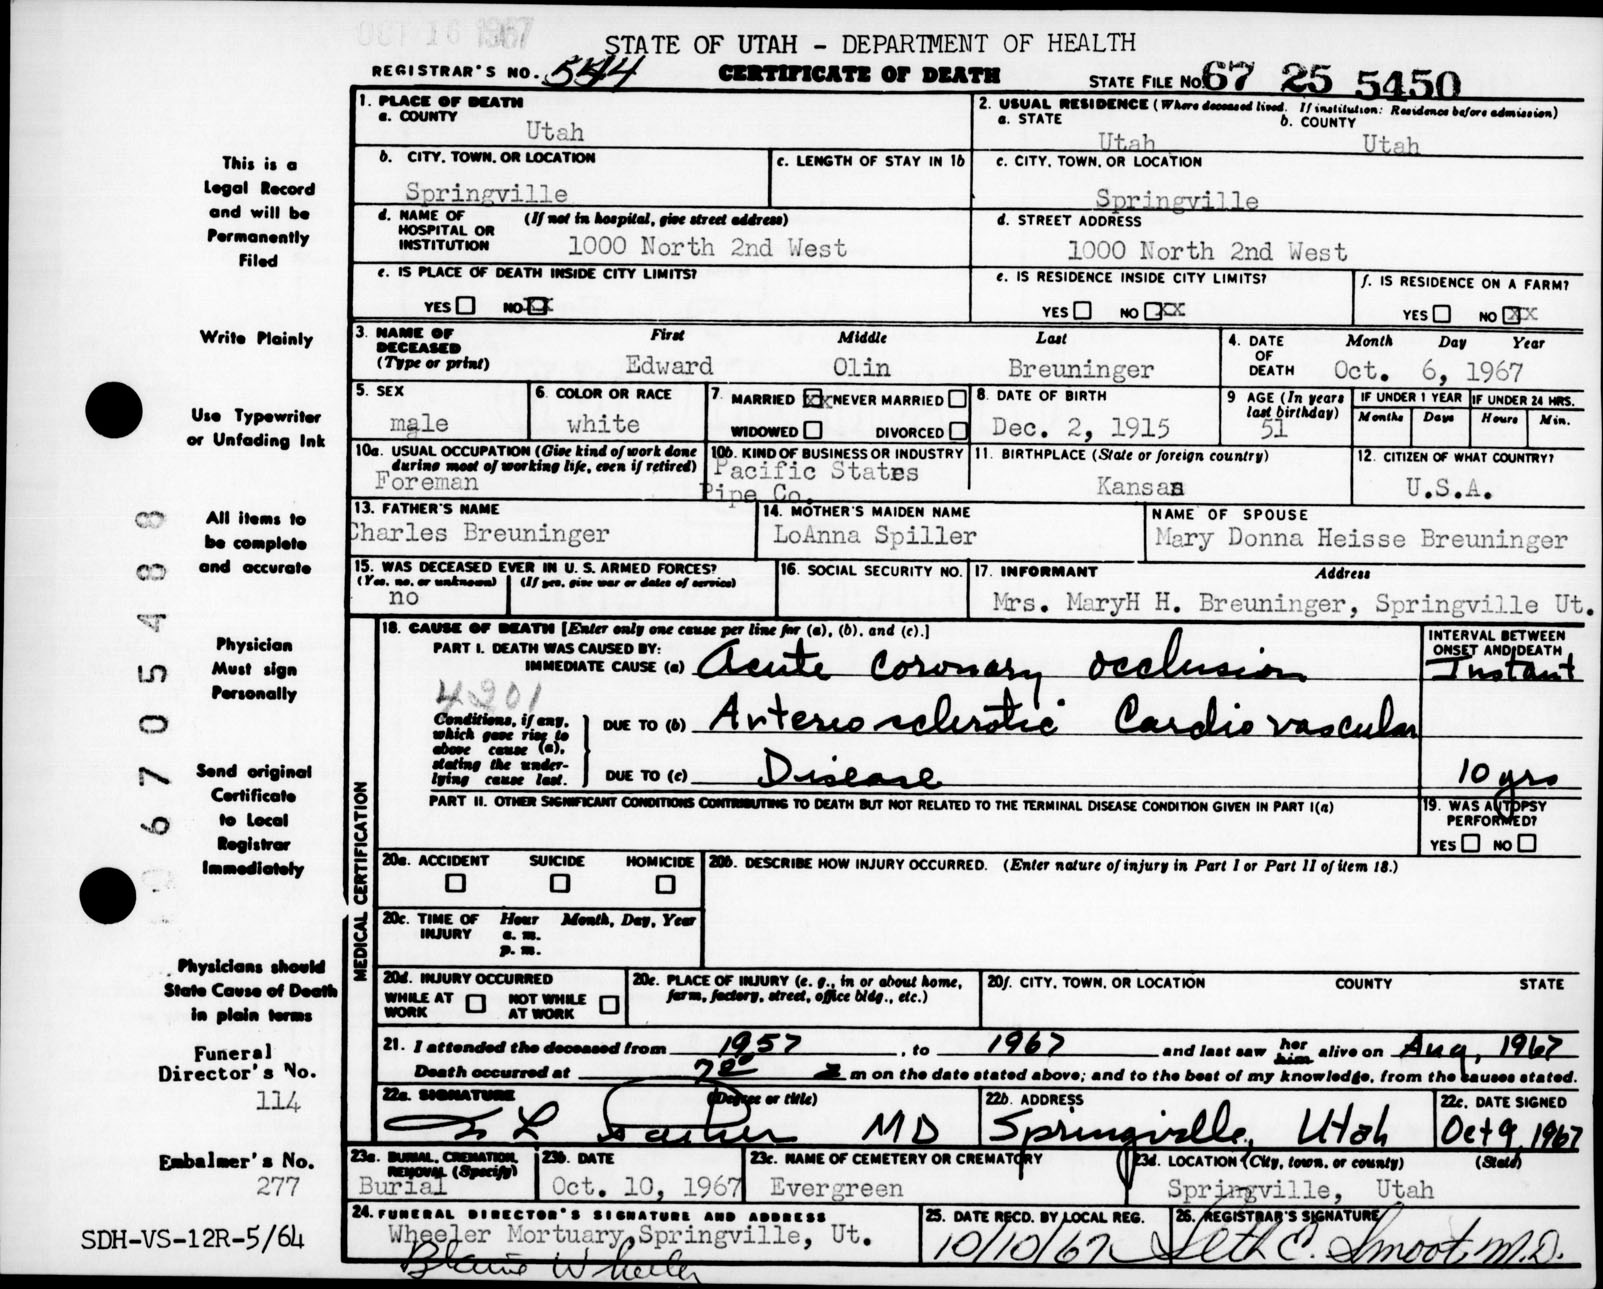 OCT 16 1967
STATE OF UTAH - DEPARTMENT OF HEALTH
REGISTRAR'S NO. 554 CERTIFICATE OF DEATH STATE FILE NO. 67 25 5450
1. PLACE OF DEATH
a. COUNTY
Utah
2. USUAL RESIDENCE (Where deceased lived. If institution: Residence before admission)
a. STATE b. COUNTY
Utah Utah
b. CITY, TOWN, OR LOCATION c. LENGTH OF STAY IN 1b
Springville
c. CITY, TOWN, OR LOCATION
Springville
d. NAME OF HOSPITAL OR INSTITUTION (If not in hospital, give street address)
1000 North 2nd West
d. STREET ADDRESS
1000 North 2nd West
e. IS PLACE OF DEATH INSIDE CITY LIMITS?
YES NO XX
e. IS RESIDENCE INSIDE CITY LIMITS?
YES NO XX
f. IS RESIDENCE ON A FARM?
YES NO XX
3. NAME OF DECEASED (Type or print) First Middle Last
Edward Olin Breuninger
4. DATE OF DEATH Month Day Year
Oct. 6, 1967
5. SEX
male
6. COLOR OR RACE
white
7. MARRIED XX NEVER MARRIED
WIDOWED DIVORCED
8. DATE OF BIRTH
Dec. 2, 1915
9 AGE (In years last birthday)
51
IF UNDER 1 YEAR IF UNDER 24 HRS.
Months Days Hours Min.
10a. USUAL OCCUPATION (Give kind of work done during most of working life, even if retired)
Foreman
10b. KIND OF BUSINESS OR INDUSTRY
Pacific States
Pipe Co.
11. BIRTHPLACE (State or foreign country)
Kansas
12. CITIZEN OF WHAT COUNTRY?
U.S.A.
13. FATHER'S NAME
Charles Breuninger
14. MOTHER'S MAIDEN NAME
LoAnna Spiller
NAME OF SPOUSE
Mary Donna Heisse Breuninger
15. WAS DECEASED EVER IN U. S. ARMED FORCES?
(Yes, no, or unknown) (If yes, give war or dates of service)
no
16. SOCIAL SECURITY NO.
17. INFORMANT Address
Mrs. MaryH H. Breuninger, Springville Ut.
MEDICAL CERTIFICATION
18. CAUSE OF DEATH [Enter only one cause per line for (a), (b), and (c).]
PART I. DEATH WAS CAUSED BY:
IMMEDIATE CAUSE (a) Acute coronary occlusion
INTERVAL BETWEEN ONSET AND DEATH
Instant
4201
Conditions, if any, which gave rise to above cause (a), stating the underlying cause last.
DUE TO (b) Arteriosclerotic Cardiovascular
DUE TO (c) Disease 10 yrs
PART II. OTHER SIGNIFICANT CONDITIONS CONTRIBUTING TO DEATH BUT NOT RELATED TO THE TERMINAL DISEASE CONDITION GIVEN IN PART I(a)
19. WAS AUTOPSY PERFORMED?
YES NO
20a. ACCIDENT SUICIDE HOMICIDE
20b. DESCRIBE HOW INJURY OCCURRED. (Enter nature of injury in Part I or Part II of item 18.)
20c. TIME OF INJURY Hour Month, Day, Year
a. m.
p. m.
20d. INJURY OCCURRED
WHILE AT WORK NOT WHILE AT WORK
20e. PLACE OF INJURY (e. g., in or about home, farm, factory, street, office bldg., etc.)
20f. CITY, TOWN, OR LOCATION COUNTY STATE
21. I attended the deceased from 1957, to 1967 and last saw her him alive on Aug, 1967
Death occurred at m on the date stated above; and to the best of my knowledge, from the causes stated.
22a. SIGNATURE (Degree or title)
MD
22b. ADDRESS
Springville, Utah
22c. DATE SIGNED
Oct 9, 1967
23a. BURIAL, CREMATION, REMOVAL (Specify)
Burial
23b. DATE
Oct. 10, 1967
23c. NAME OF CEMETERY OR CREMATORY
Evergreen
23d. LOCATION (City, town, or county) (State)
Springville, Utah
24. FUNERAL DIRECTOR'S SIGNATURE AND ADDRESS
Wheeler Mortuary, Springville, Ut.
Blaine Wheeler
25. DATE RECD. BY LOCAL REG.
10/10/67
26. REGISTRAR'S SIGNATURE
Seth E. Smoot, M.D.
This is a
Legal Record
and will be
Permanently
Filed
Write Plainly
Use Typewriter
or Unfading Ink
All items to
be complete
and accurate
Physician
Must sign
Personally
Send original
Certificate
to Local
Registrar
Immediately
Physicians should
State Cause of Death
in plain terms
Funeral
Director's No.
114
Embalmer's No.
277
SDH-VS-12R-5/64
67054 88